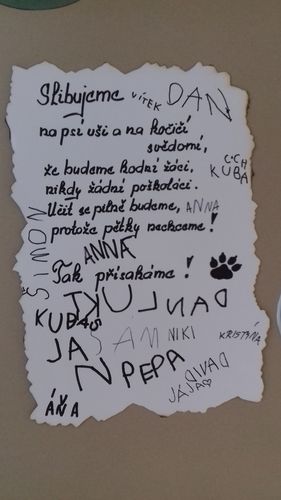 Slibujeme VÍTEK DAN
na psí uši a na kočičí
svědomí,
že budeme hodní žáci,
KUBA
nikdy žádní poškoláci.
Učit se pilně budeme, ANNA
protože pětky nechceme!
ŠIMON
ANNA
Tak přísaháme!
DAN LUKI
KUBAS
JAN SAM NIKI
KRISTÝNA
PEPA
DAVID
JÁJA
ÁŇA